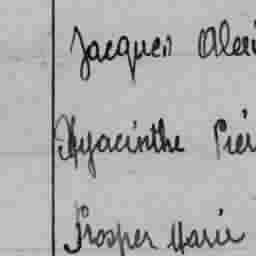 Jacques Alexi
Hyacinthe Pier
Prosper Marie